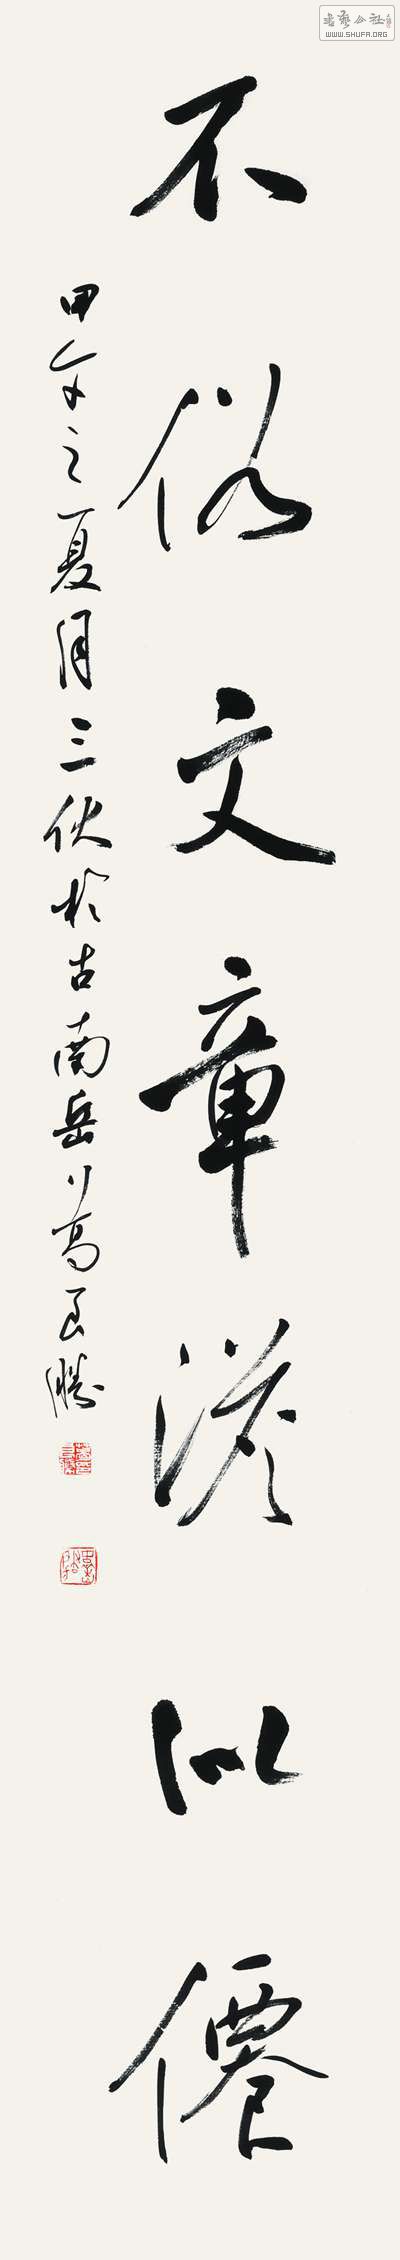 書藝公社
WWW.SHUFA.ORG
不俗文章淡似僊
甲午之夏月三伏於古南岳高思勝